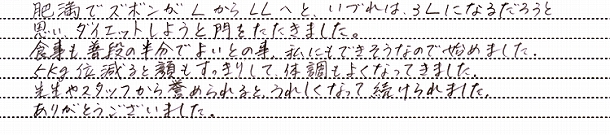 肥満でズボンがLからLLへと、いづれは、3Lになるだろうと
思い、ダイエットしようと門をたたきました。
食事も普段の半分でよいとの事、私にもできそうなので始めました。
5kg位減ると顔もすっきりして、体調もよくなってきました。
先生やスタッフから誉められると、うれしくなって続けられました。
ありがとうございました。